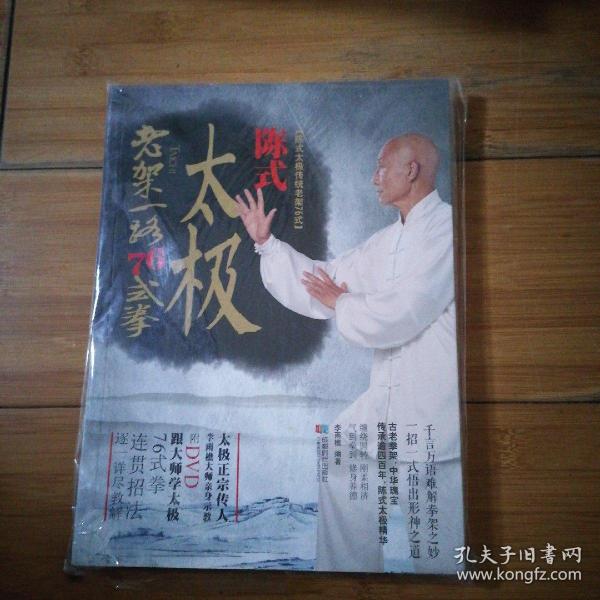 【陈式太极传统老架76式】
陈式
太极
TAICHI
老架一路76式拳
千言万语难解拳架之妙
一招一式悟出形神之道
古老拳架，中华瑰宝
传承逾四百年，陈式太极精华
缠绕圆转 刚柔相济
气到拳到 修身养德
李雨樵 编著
成都时代出版社
太极正宗传人
李雨樵大师亲身示教
附DVD
跟大师学太极
76式拳
连贯招法
逐一详尽教解
孔夫子旧书网
www.kongfz.com